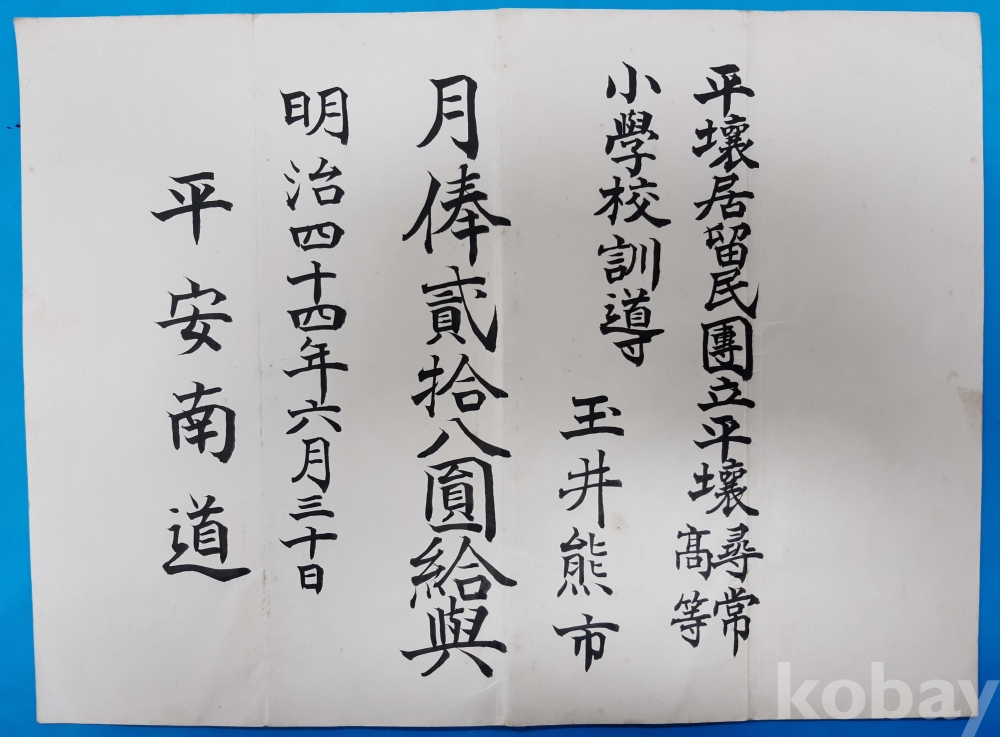 平壤居留民團立平壤尋常高等
小學校訓導
玉井熊市
月俸貳拾八圓給與
明治四十四年六月三十日
平安南道
kobay